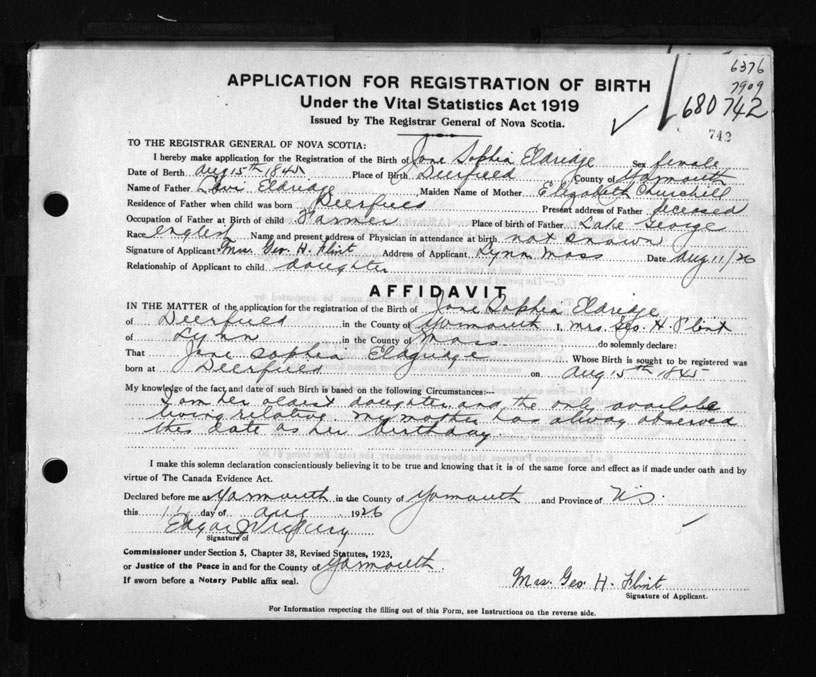 6376
7909
680742
742
APPLICATION FOR REGISTRATION OF BIRTH
Under the Vital Statistics Act 1919
Issued by The Registrar General of Nova Scotia.
TO THE REGISTRAR GENERAL OF NOVA SCOTIA:
I hereby make application for the Registration of the Birth of Jane Sophia Eldridge Sex female
Date of Birth Aug 15th 1845 Place of Birth Deerfield County of Yarmouth
Name of Father Eldridge Maiden Name of Mother Elizabeth Churchill
Residence of Father when child was born Deerfield Present address of Father deceased
Occupation of Father at Birth of child Farmer Place of birth of Father Lake George
Race English Name and present address of Physician in attendance at birth not known
Signature of Applicant Mrs. Geo. H. Flint Address of Applicant Lynn Mass Date Aug 11/26
Relationship of Applicant to child daughter
AFFIDAVIT
IN THE MATTER of the application for the registration of the Birth of Jane Sophia Eldridge
of Deerfield in the County of Yarmouth I, Mrs. Geo. H. Flint
of Lynn in the County of Mass. do solemnly declare:
That Jane Sophia Eldridge Whose Birth is sought to be registered was
born at Deerfield on Aug 15th 1845
My knowledge of the fact and date of such Birth is based on the following Circumstances:—
I am her oldest daughter and the only available
living relative. My mother has alway observed
this date as her birthday.
I make this solemn declaration conscientiously believing it to be true and knowing that it is of the same force and effect as if made under oath and by
virtue of The Canada Evidence Act.
Declared before me at Yarmouth in the County of Yarmouth and Province of N.S.
this 11 day of Aug 1926
Edgar
Signature of
Commissioner under Section 5, Chapter 38, Revised Statutes, 1923,
or Justice of the Peace in and for the County of Yarmouth.
If sworn before a Notary Public affix seal.
Mrs. Geo. H. Flint
Signature of Applicant.
For Information respecting the filling out of this Form, see Instructions on the reverse side.